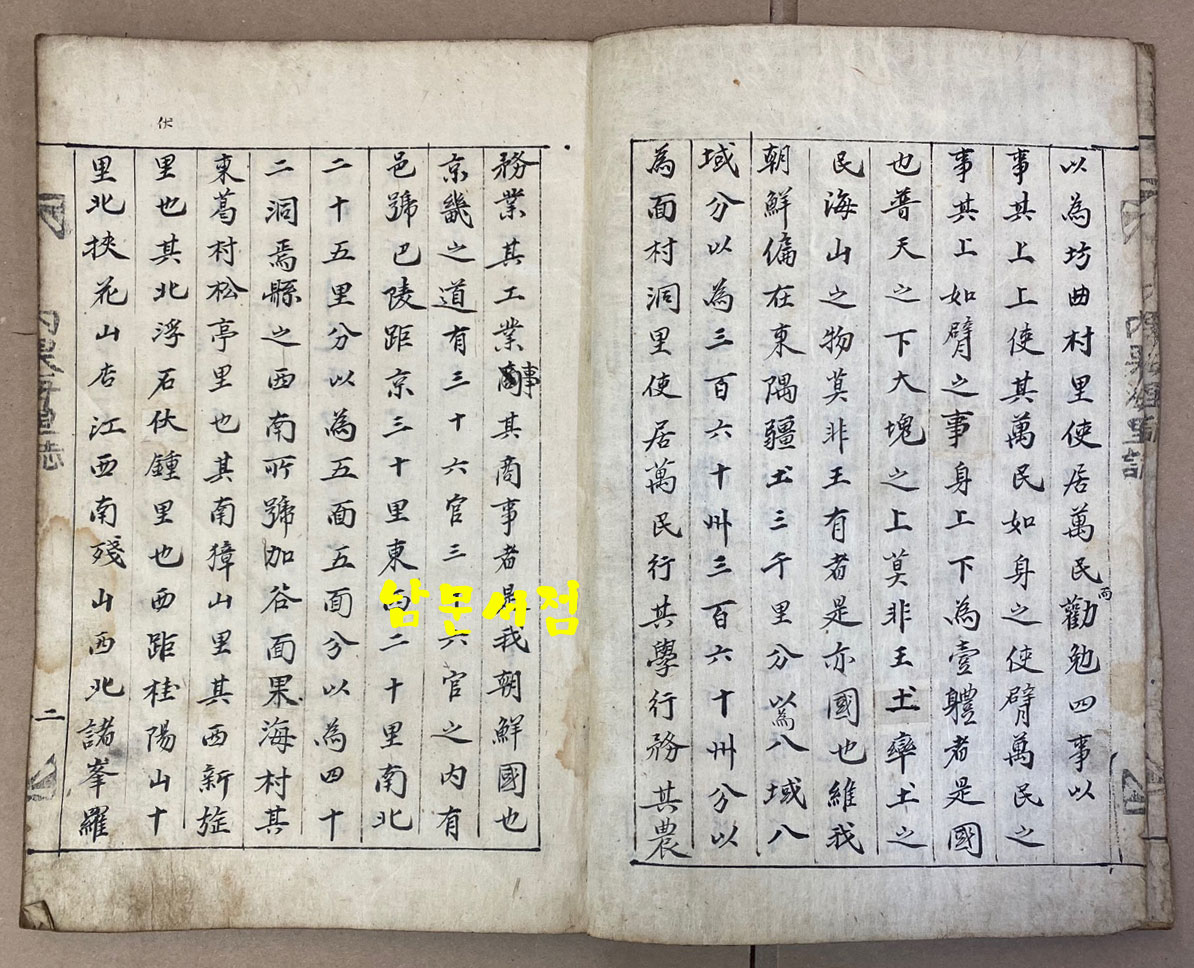 以為坊曲村里使居萬民而勸勉四事以
事其上上使其萬民如身之使臂萬民之
事其上如臂之事身上下為壹軆者是國
也普天之下大塊之上莫非王土率土之
民海山之物莫非王有者是亦國也維我
朝鮮偏在東隅疆土三千里分以為八域八
域分以為三百六十州三百六十州分以
為面村洞里使居萬民行其學行務其農
務業其工業事其商事者是我朝鮮國也
京畿之道有三十六官三十六官之内有
邑號巴陵距京三十里東西二十里南北
二十五里分以為五面五面分以為四十
二洞焉縣之西南所號加谷面果海村其
東葛村松亭里也其南獐山里其西新旋
里也其北浮石伏鍾里也西距桂陽山十
里北挾花山店江西南殘山西北諸峯羅
伏
二
남문서점